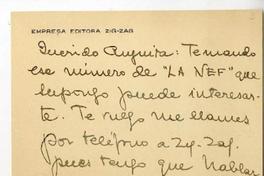 EMPRESA EDITORA ZIG-ZAG
Querido Anguita: Te mando
ese número de "LA NEF" que
supongo puede interesar-
te. Te ruego me llames
por teléfono a Zig-Zag,
pues tengo que hablar